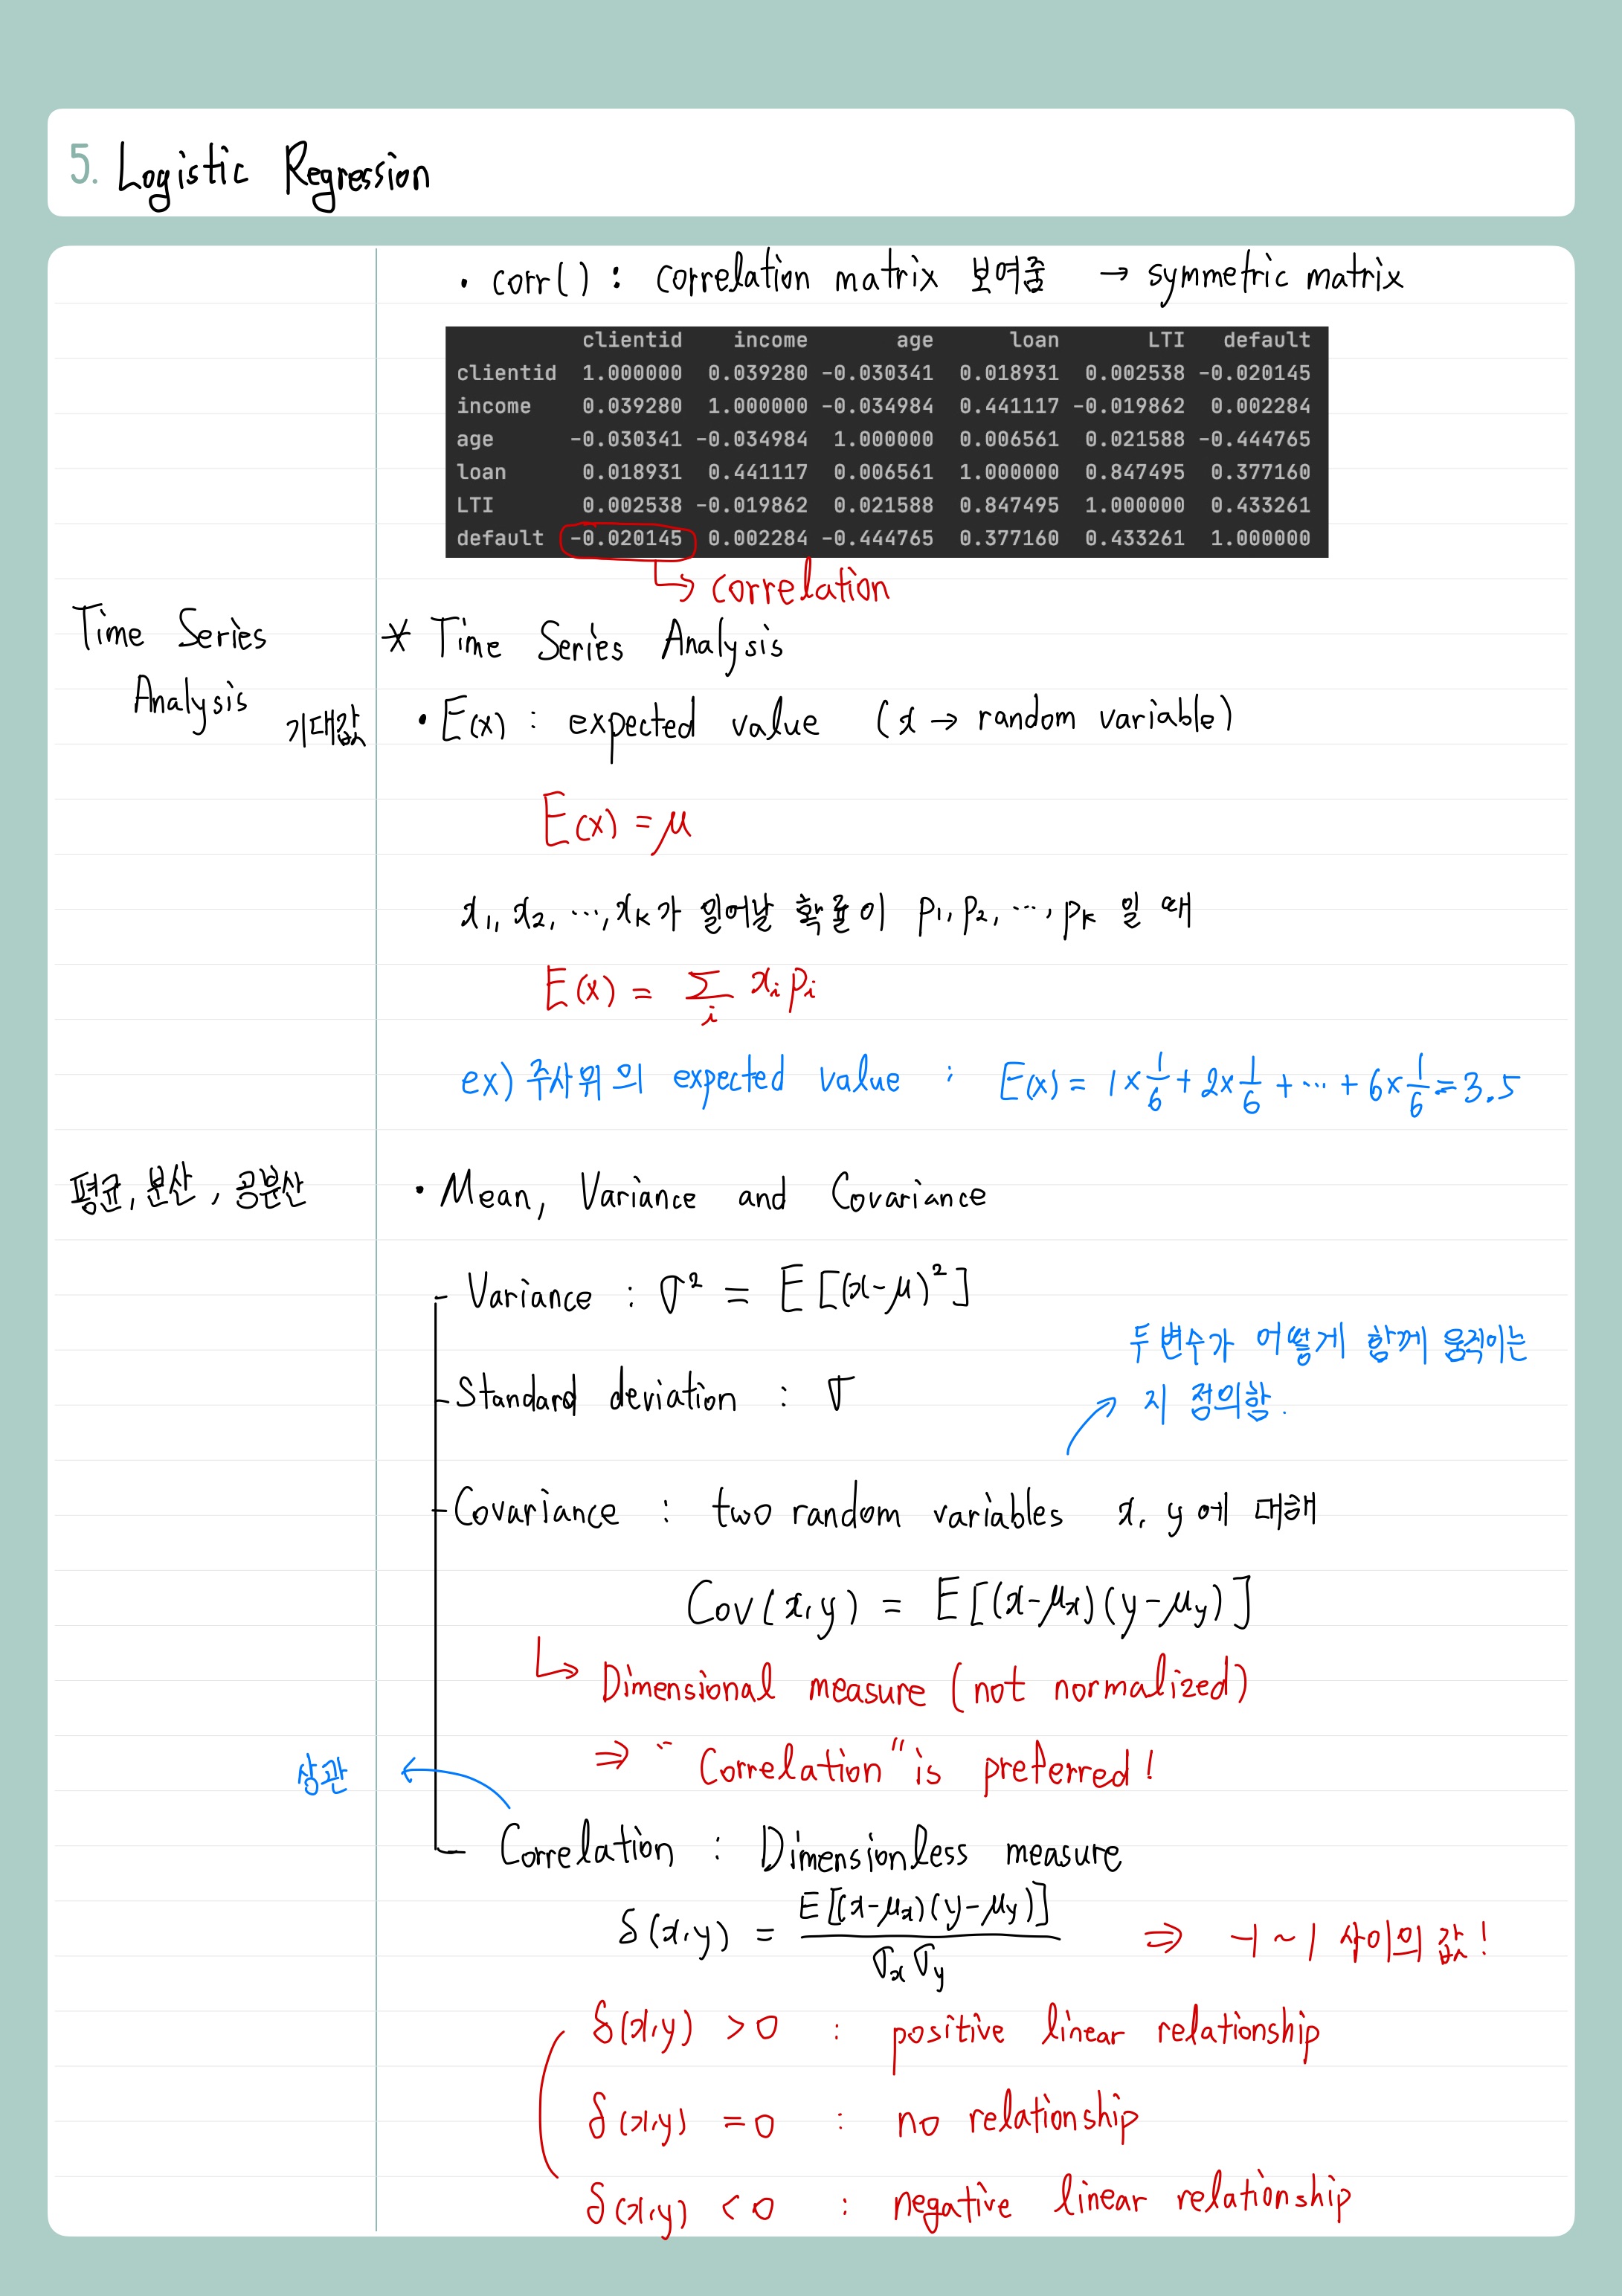 5. Logistic Regression
• corr() : correlation matrix 보여줌 → symmetric matrix
clientid income age loan LTI default
clientid 1.000000 0.039280 -0.030341 0.018931 0.002538 -0.020145
income 0.039280 1.000000 -0.034984 0.441117 -0.019862 0.002284
age -0.030341 -0.034984 1.000000 0.006561 0.021588 -0.444765
loan 0.018931 0.441117 0.006561 1.000000 0.847495 0.377160
LTI 0.002538 -0.019862 0.021588 0.847495 1.000000 0.433261
default -0.020145 0.002284 -0.444765 0.377160 0.433261 1.000000
↳ correlation
Time Series
Analysis
* Time Series Analysis
기대값
• E(x) : expected value (x → random variable)
E(x) = μ
x₁, x₂, ⋯, xₖ가 일어날 확률이 p₁, p₂, ⋯, pₖ 일 때
E(x) = Σᵢ xᵢ pᵢ
ex) 주사위의 expected value : E(x) = 1×1/6 + 2×1/6 + ⋯ + 6×1/6 = 3.5
평균, 분산, 공분산
• Mean, Variance and Covariance
- Variance : σ² = E[(x-μ)²]
두 변수가 어떻게 함께 움직이는
지 정의함.
- Standard deviation : σ
- Covariance : two random variables x, y에 대해
Cov(x,y) = E[(x-μx)(y-μy)]
↳ Dimensional measure (not normalized)
⇒ "Correlation" is preferred!
상관
- Correlation : Dimensionless measure
δ(x,y) = E[(x-μx)(y-μy)] / σxσy ⇒ -1 ~ 1 사이의 값!
δ(x,y) > 0 : positive linear relationship
δ(x,y) = 0 : no relationship
δ(x,y) < 0 : negative linear relationship